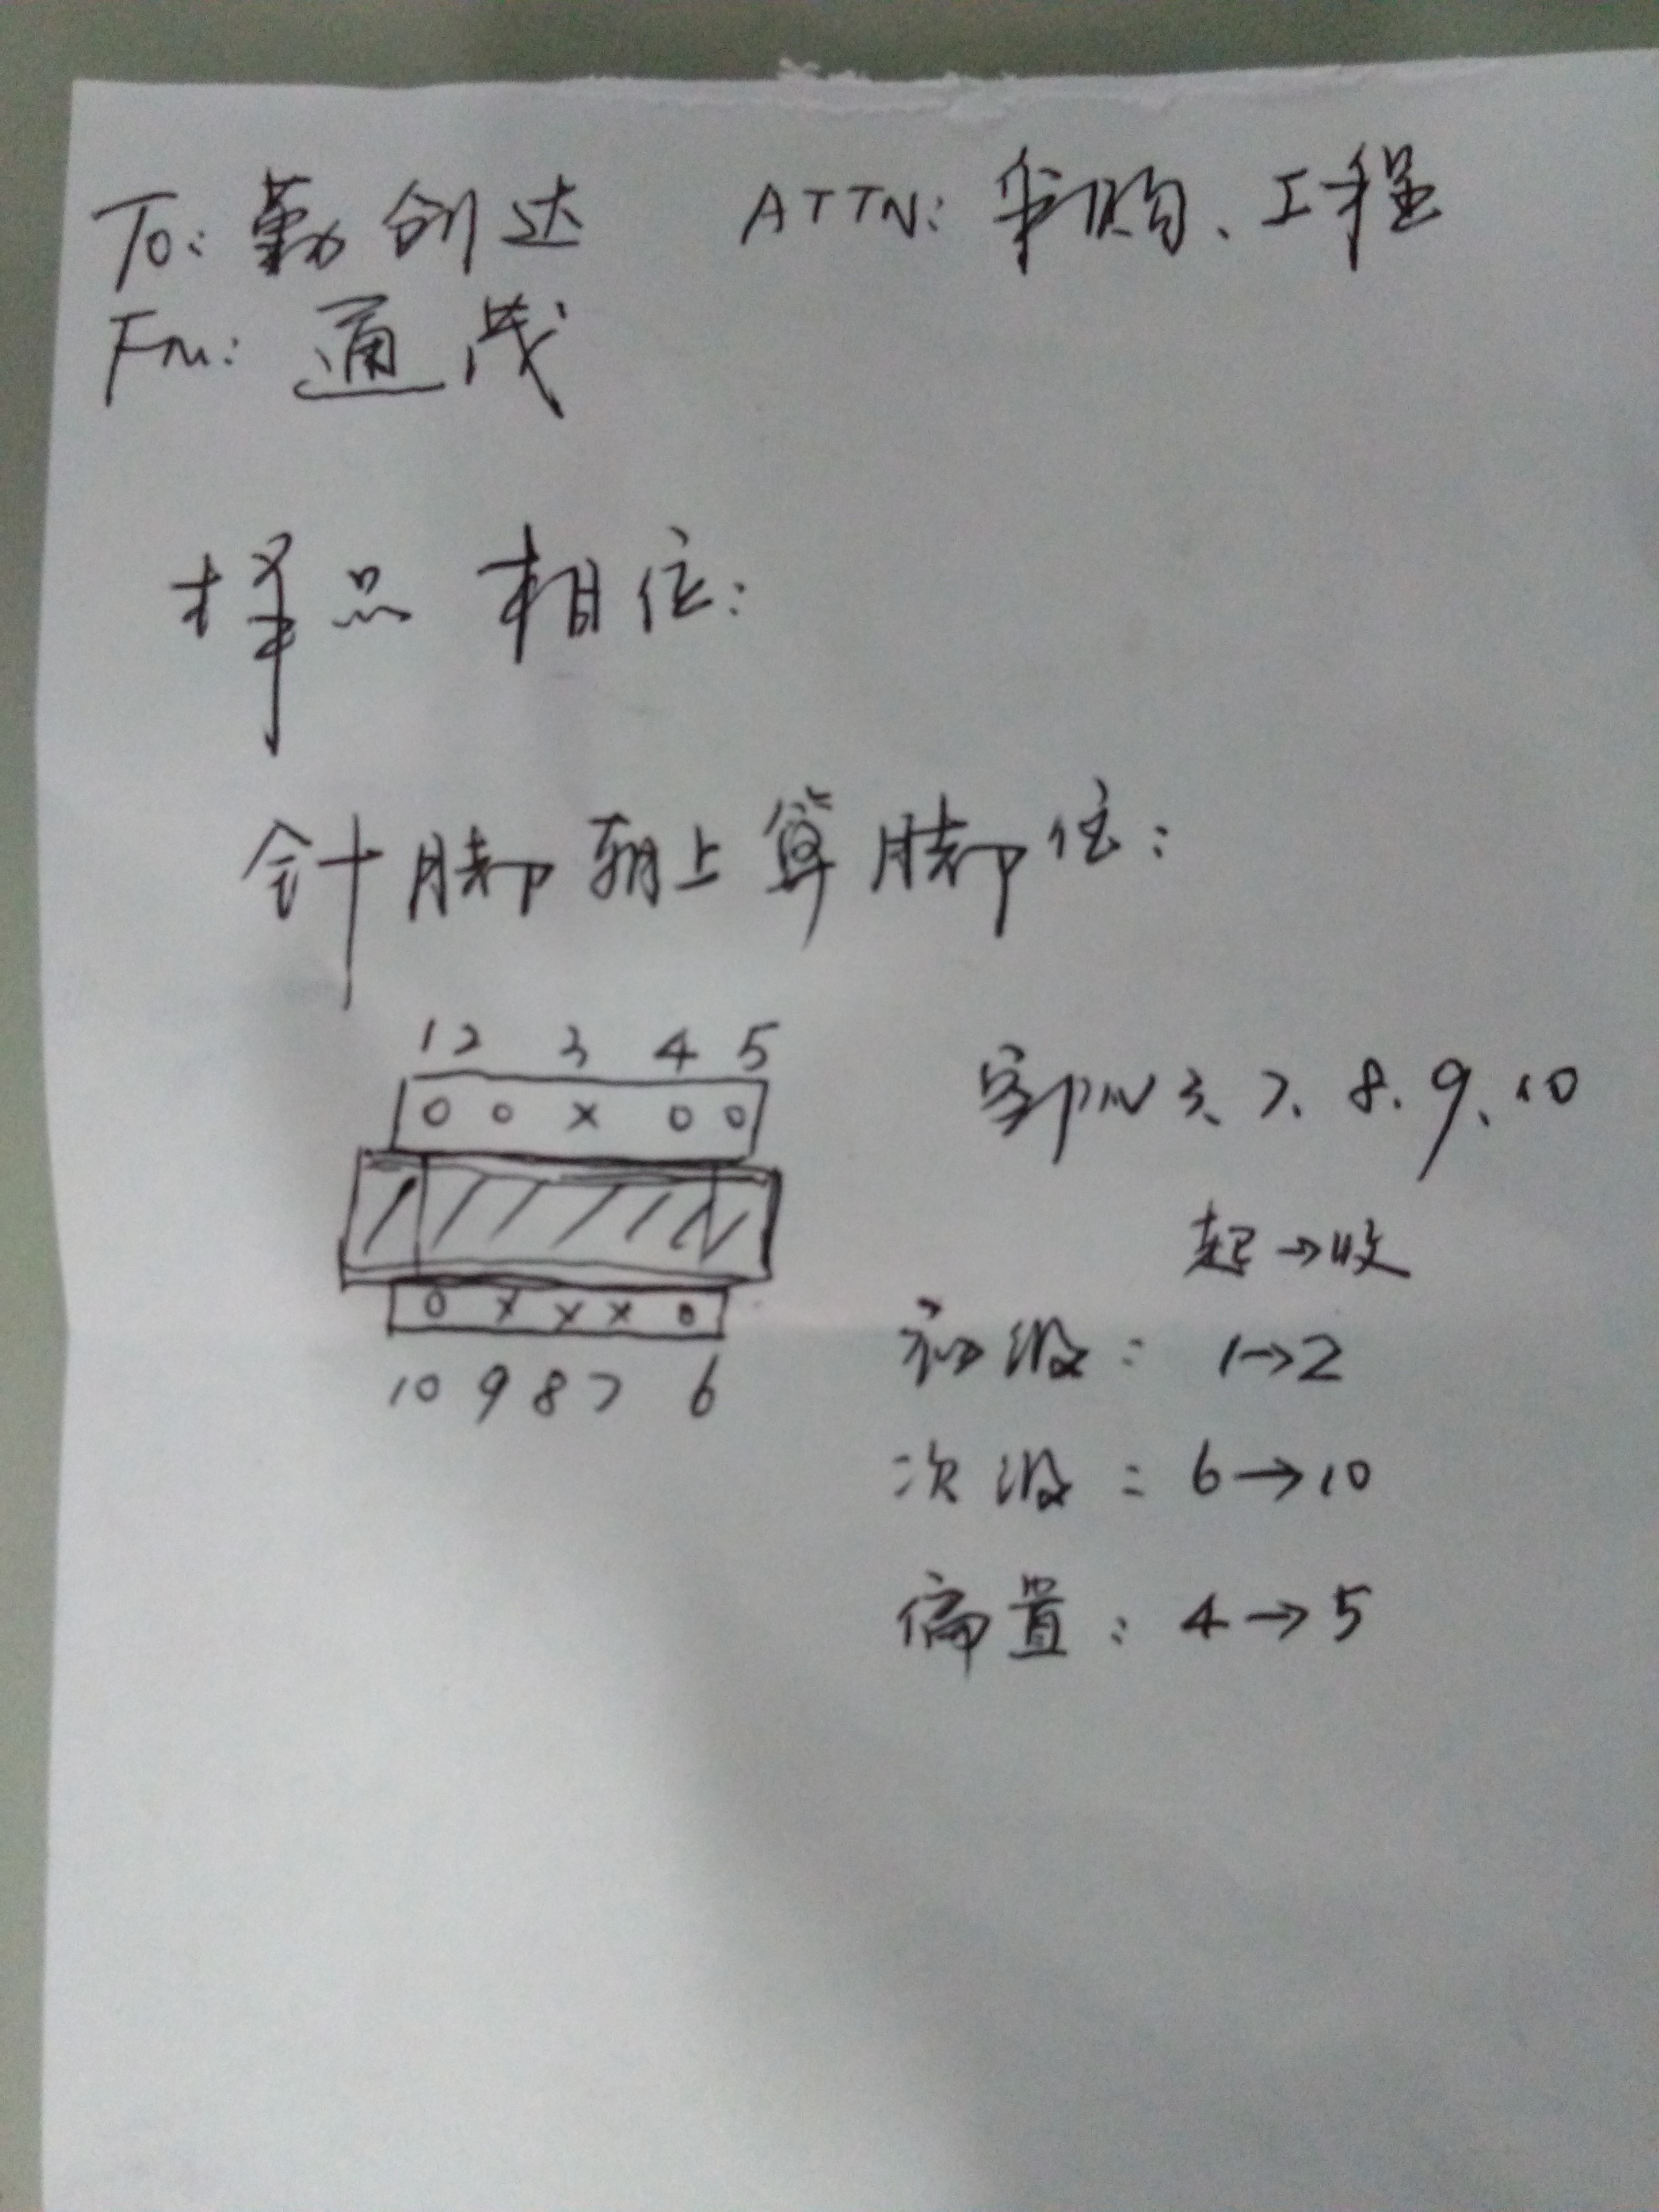 To: 勤创达 ATTN: 采购、工程
Fm: 通茂
样品 相位:
针脚朝上算脚位:
1 2 3 4 5
o o x o o
o x x x o
10 9 8 7 6
3、7、8、9、10
起→收
初级: 1→2
次级: 6→10
偏置: 4→5